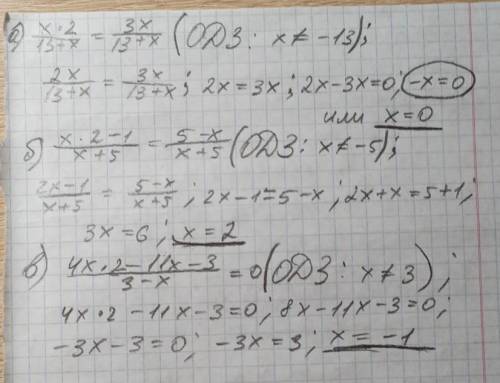 а) x·2/13+x = 3x/13+x (ОДЗ: x≠-13);
2x/13+x = 3x/13+x; 2x=3x; 2x-3x=0; -x=0
или x=0
б) x·2-1/x+5 = 5-x/x+5 (ОДЗ: x≠-5);
2x-1/x+5 = 5-x/x+5; 2x-1=5-x; 2x+x=5+1;
3x=6; x=2
в) 4x·2-11x-3/3-x = 0 (ОДЗ: x≠3);
4x·2-11x-3=0; 8x-11x-3=0;
-3x-3=0; -3x=3; x=-1